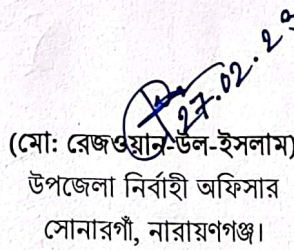 (মো: রেজওয়ান-উল-ইসলাম)
উপজেলা নির্বাহী অফিসার
সোনারগাঁ, নারায়ণগঞ্জ।